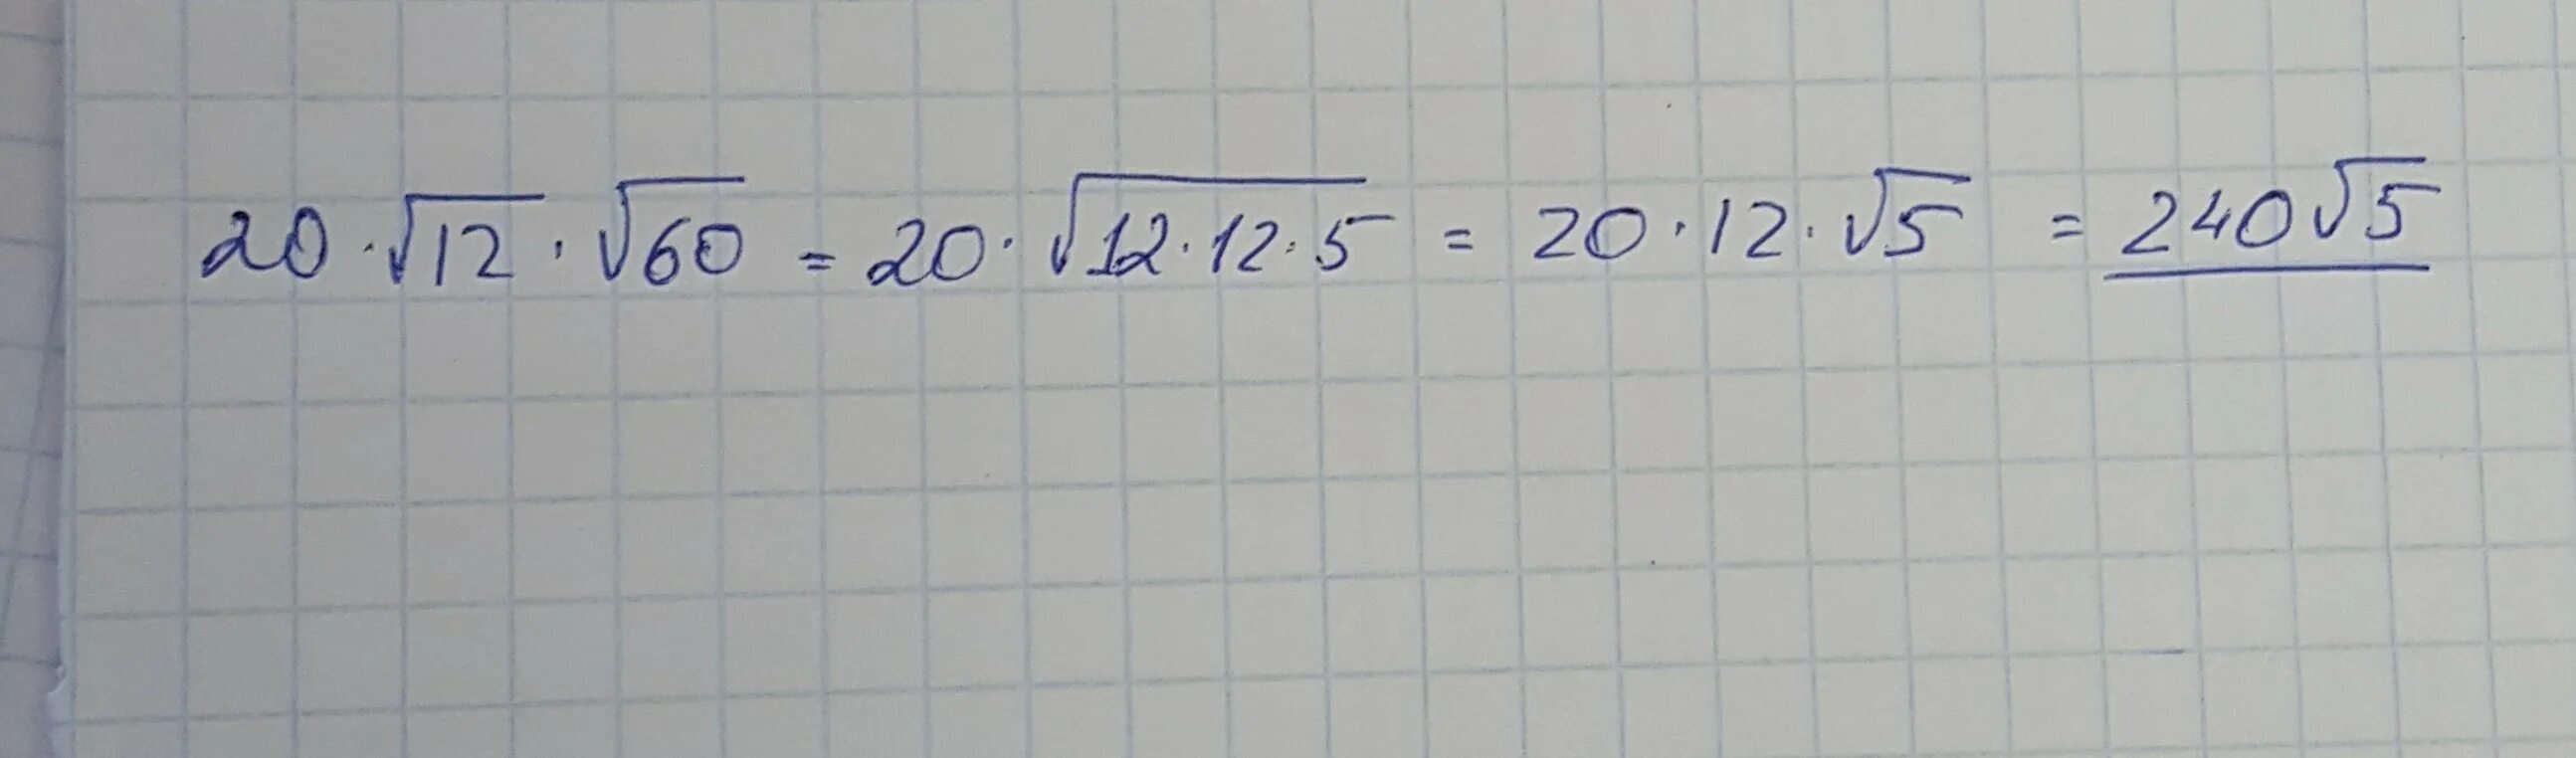 20·√12·√60 = 20·√12·12·5 = 20·12·√5 = 240√5